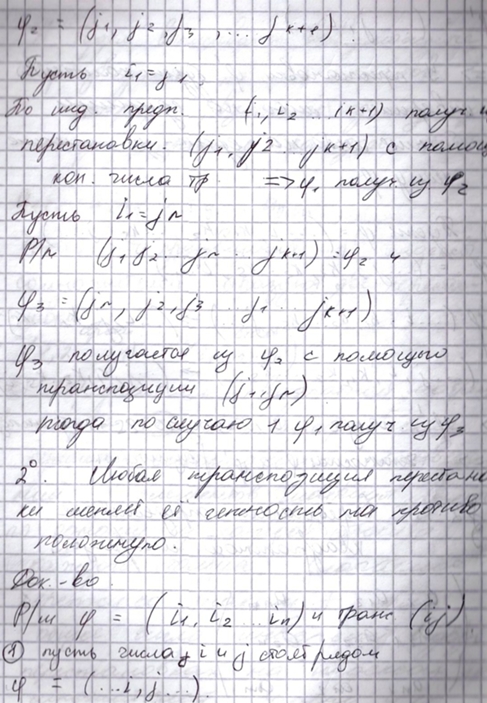 φ₂ = (j1, j2, j3, ... jk+1)
Пусть i1 = j1.
По инд. предп. (i1, i2 ... ik+1) получ и
перестановки. (j1, j2 ... jk+1) с помощ
кон. числа тр => φ1 получ из φ2
Пусть i1 = jr
Р/м (j1 j2 ... jr ... jk+1) = φ2 и
φ3 = (jr, j2, j3 ... j1 jk+1)
φ3 получается из φ2 с помощью
транспозиции (j1, jr)
тогда по случаю 1 φ1 получ. из φ3
2°. Любая транспозиция перестано
ки меняет её четность на противо
положную.
Док-во
Р/м φ = (i1, i2 ... in) и транс (ij)
① пусть числа i и j стоят рядом
φ = (... i, j ...).